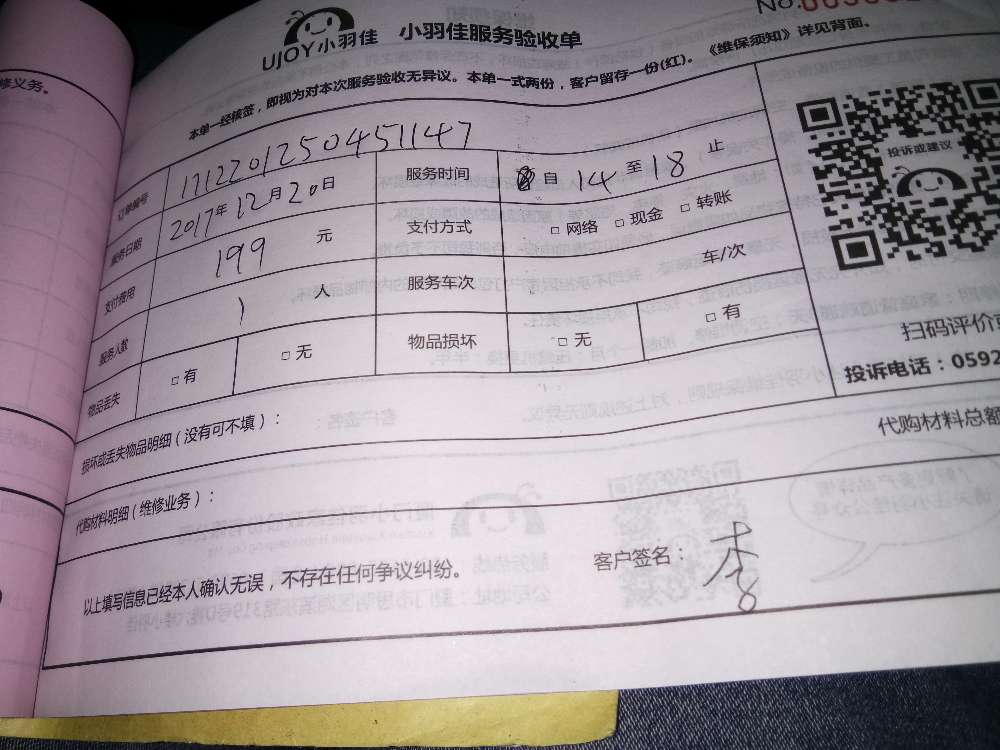 修义务。
UJOY小羽佳 小羽佳服务验收单
No.
本单一经核签，即视为对本次服务验收无异议。本单一式两份，客户留存一份(红)。《维保须知》详见背面。
订单编号 17122012504511147 服务时间 自 14 至 18 止
服务日期 2017年12月20日 支付方式 □ 网络 □ 现金 □ 转账
支付费用 199 元 服务车次 车/次
服务人数 1 人 物品损坏 □ 无 □ 有
物品丢失 □ 有 □ 无
投诉或建议
扫码评价
投诉电话：0592
损坏或丢失物品明细（没有可不填）：
代购材料总额
代购材料明细（维修业务）：
以上填写信息已经本人确认无误，不存在任何争议纠纷。 客户签名：